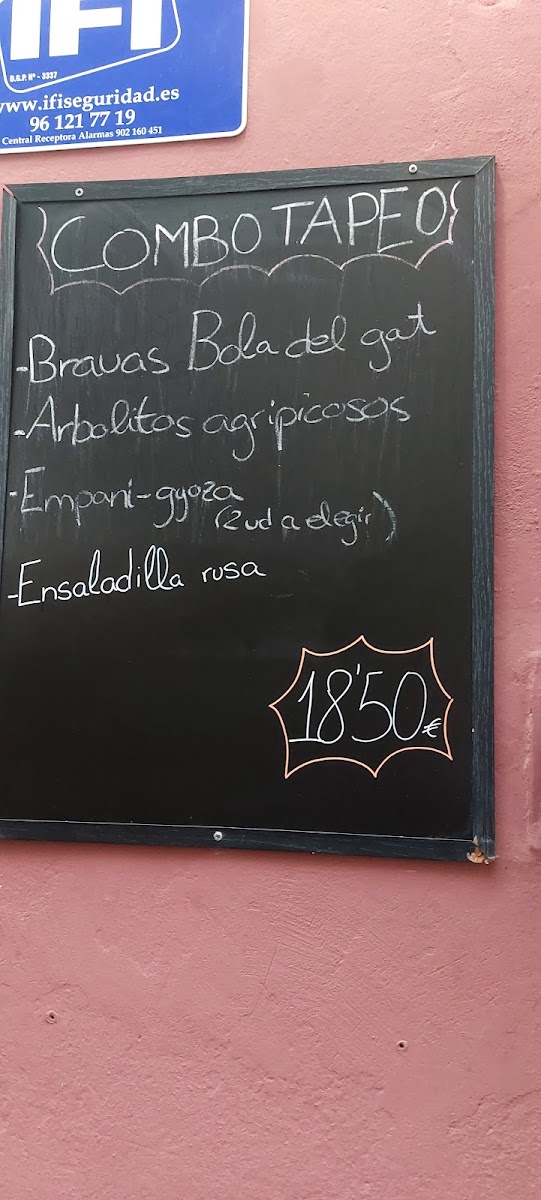 IFI
D.G.P. Nº - 3337
www.ifiseguridad.es
96 121 77 19
Central Receptora Alarmas 902 160 451
COMBO TAPEO
-Bravas Bola del gat
-Arbolitos agripicosos
-Empani-gyoza
(2 ud a elegir)
-Ensaladilla rusa
18'50€